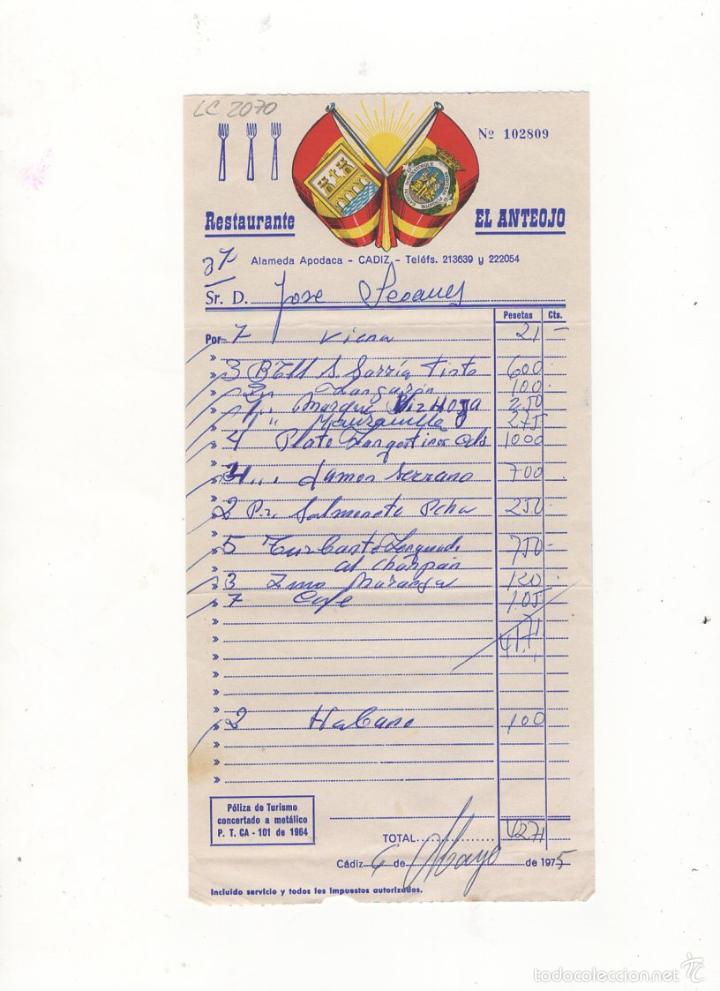 LC 2070
Nº 102809
Restaurante EL ANTEOJO
Alameda Apodaca - CADIZ - Teléfs. 213639 y 222054
37
Sr. D. Jose
Pesetas Cts.
Por 7 Viena 21 -
» 3 Botll S. Sarría Tinto 600 -
» 100 -
» 1 " Marqué 250
» 1 " Manzanilla 275
» 4 Plato Langostinos 1000
»
» 4 " Jamon Serrano 700
»
» 2 Pz. Salmonete Pcha 250
»
» 5 750 -
» al champán
» 3 Zumo Naranja 120 -
» 7 Cafe 105
» 4171
»
»
»
»
»
» 2 Habano 100
»
»
»
Póliza de Turismo
concertado a metálico
P. T. CA - 101 de 1964
TOTAL 4271
Cádiz 6 de Mayo de 1975
Incluido servicio y todos los impuestos autorizados.
todocoleccion.net